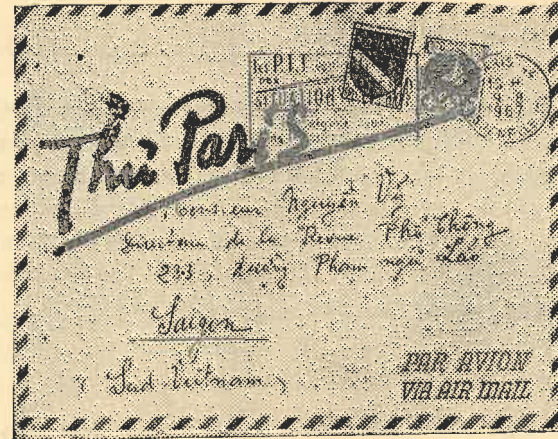 Thư Paris
Monsieur Nguyễn Vỹ
Directeur de la Revue Phổ Thông
233, đường Phạm ngũ Lão
Saigon
(Sud Vietnam)
PAR AVION
VIA AIR MAIL